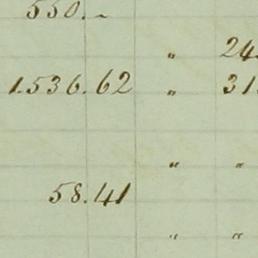 550.~
„ 24
1.536.62 „ 31
„ „
58.41
„ „